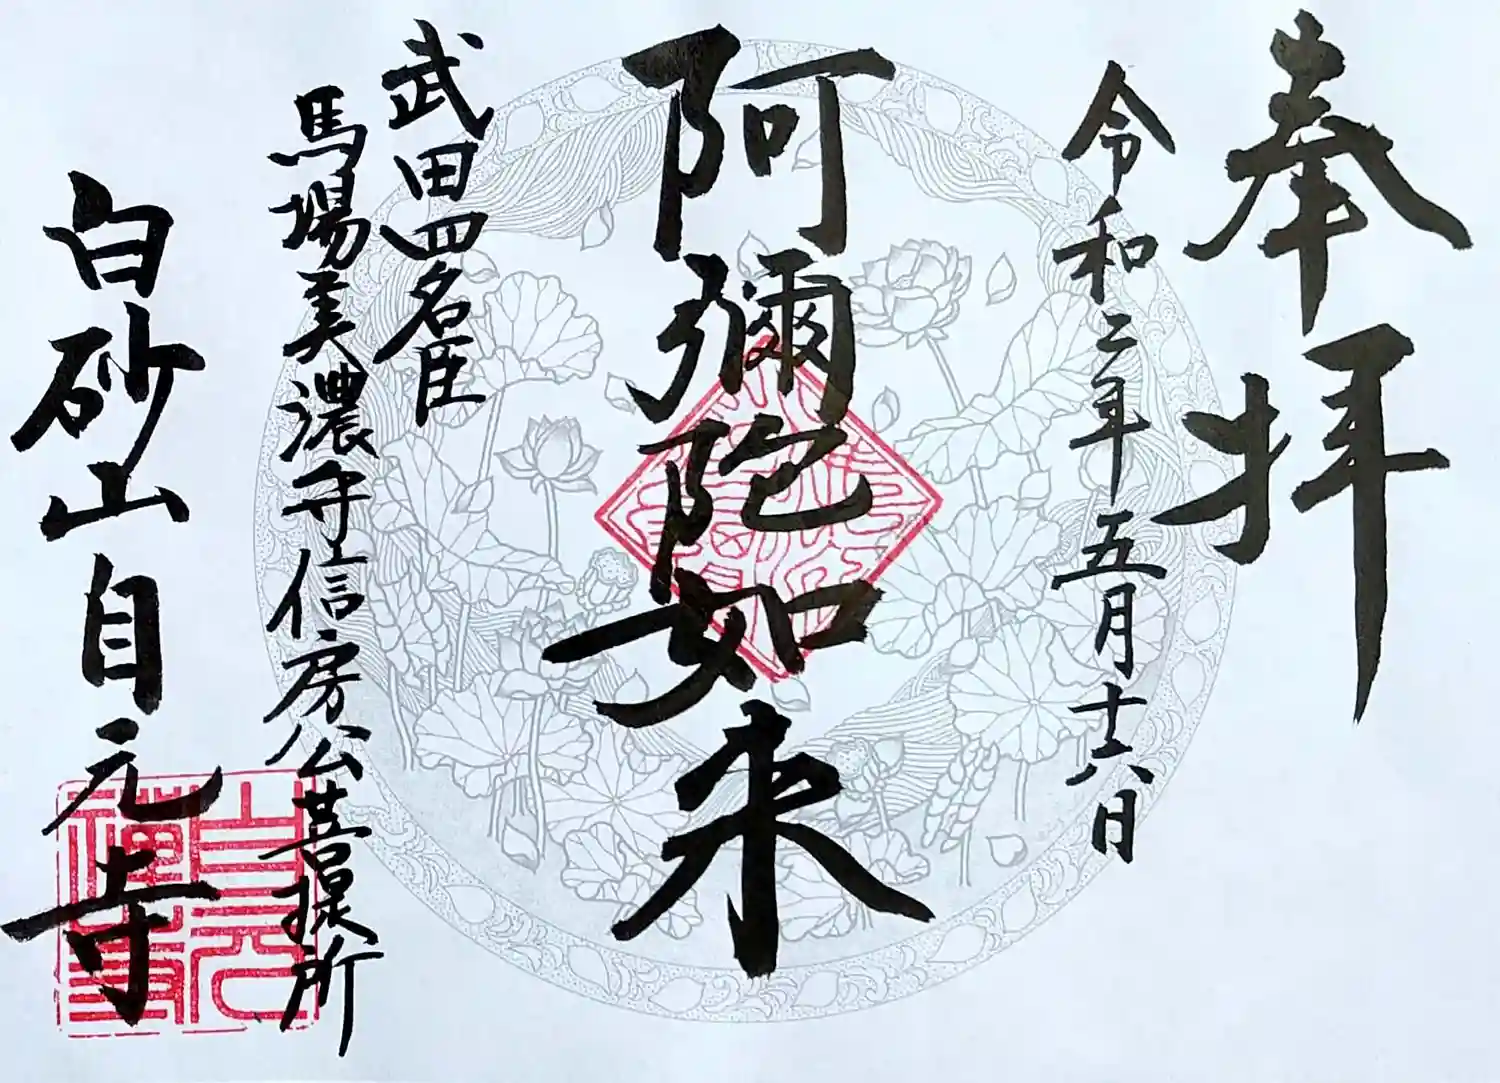 奉拝
令和二年五月十六日
阿彌陀如来
武田四名臣
馬場美濃守信房公菩提所
白砂山自元寺